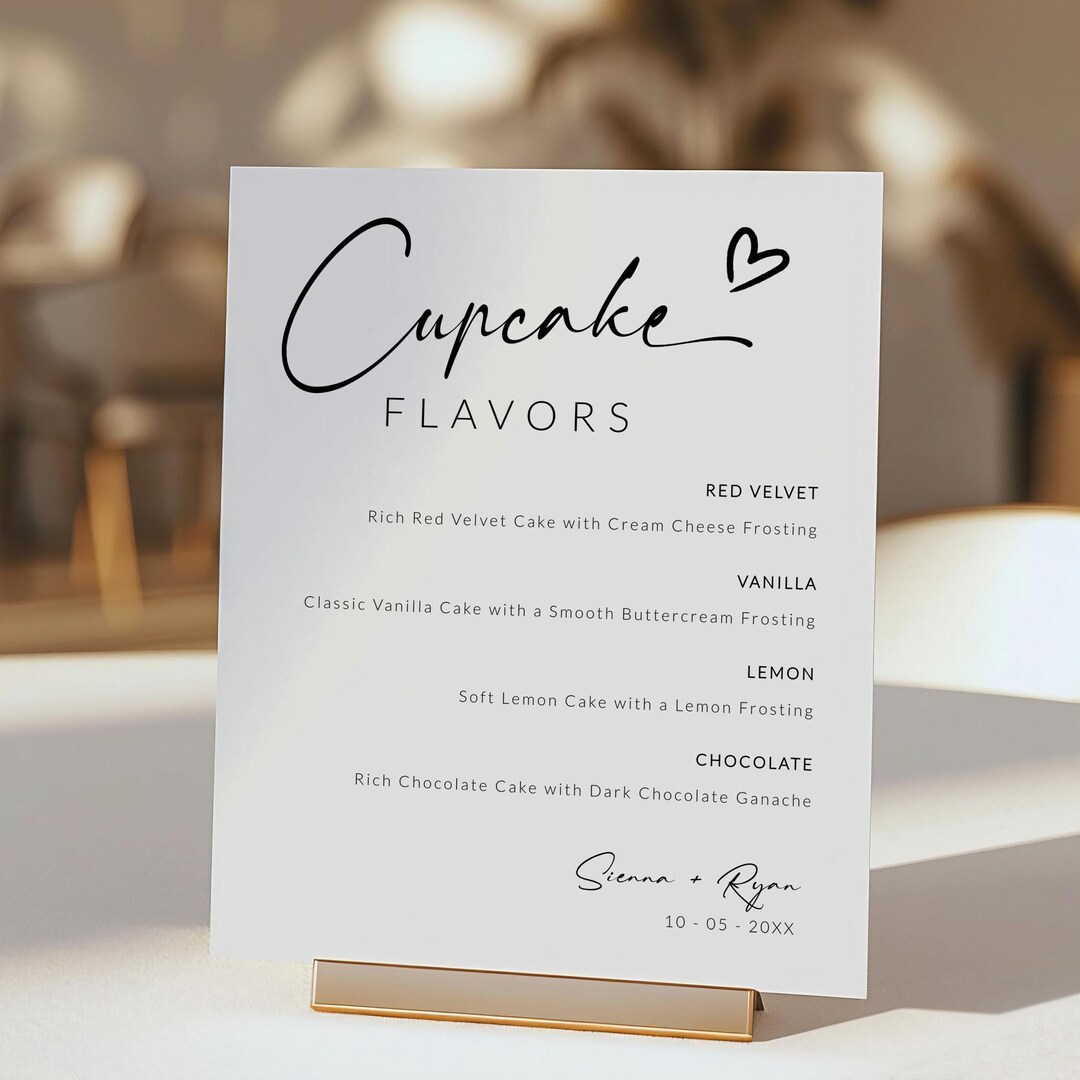 Cupcake
FLAVORS
RED VELVET
Rich Red Velvet Cake with Cream Cheese Frosting
VANILLA
Classic Vanilla Cake with a Smooth Buttercream Frosting
LEMON
Soft Lemon Cake with a Lemon Frosting
CHOCOLATE
Rich Chocolate Cake with Dark Chocolate Ganache
Sienna + Ryan
10 - 05 - 20XX